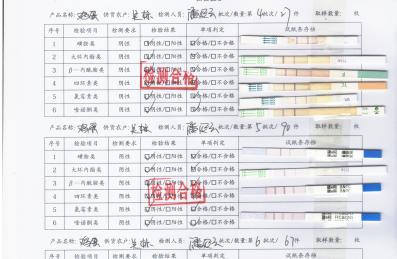 产品名称: 鸡蛋 供货农户: 检测人员: 批次/数量:第 4 批次/ 27 件 取样数量: 枚
序号 检验项目 检测要求 检验结果 单项判定 试纸条存档
1 磺胺类 阴性 ☑阴性/□阳性 ☑合格/□不合格
2 大环内酯类 阴性 ☑阴性/□阳性 ☑合格/□不合格
3 β－内酰胺类 阴性 ☑阴性/□阳性 ☑合格/□不合格
4 四环素类 阴性 ☑阴性/□阳性 ☑合格/□不合格
5 氯霉素类 阴性 ☑阴性/□阳性 ☑合格/□不合格
6 喹诺酮类 阴性 ☑阴性/□阳性 ☑合格/□不合格
检测合格
产品名称: 鸡蛋 供货农户: 检测人员: 批次/数量:第 5 批次/ 90 件 取样数量: 枚
序号 检验项目 检测要求 检验结果 单项判定 试纸条存档
1 磺胺类 阴性 ☑阴性/□阳性 ☑合格/□不合格
2 大环内酯类 阴性 ☑阴性/□阳性 ☑合格/□不合格
3 β－内酰胺类 阴性 ☑阴性/□阳性 ☑合格/□不合格
4 四环素类 阴性 ☑阴性/□阳性 ☑合格/□不合格
5 氯霉素类 阴性 ☑阴性/□阳性 ☑合格/□不合格
6 喹诺酮类 阴性 ☑阴性/□阳性 ☑合格/□不合格
检测合格
产品名称: 鸡蛋 供货农户: 检测人员: 批次/数量:第 6 批次/ 67 件 取样数量: 枚